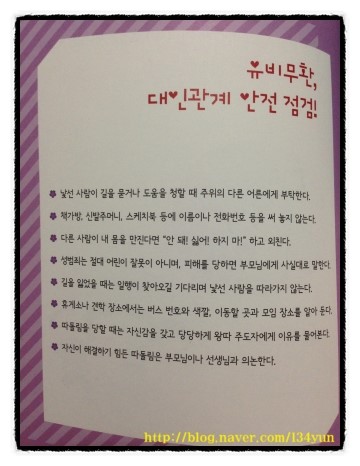 유비무환,
대인관계 안전 점검!
낯선 사람이 길을 묻거나 도움을 청할 때 주위의 다른 어른에게 부탁한다.
책가방, 신발주머니, 스케치북 등에 이름이나 전화번호 등을 써 놓지 않는다.
다른 사람이 내 몸을 만진다면 "안 돼! 싫어! 하지 마!" 하고 외친다.
성범죄는 절대 어린이 잘못이 아니며, 피해를 당하면 부모님에게 사실대로 말한다.
길을 잃었을 때는 일행이 찾아오길 기다리며 낯선 사람을 따라가지 않는다.
휴게소나 견학 장소에서는 버스 번호와 색깔, 이동할 곳과 모임 장소를 알아 둔다.
따돌림을 당할 때는 자신감을 갖고 당당하게 왕따 주도자에게 이유를 물어본다.
자신이 해결하기 힘든 따돌림은 부모님이나 선생님과 의논한다.
http://blog.naver.com/134yun